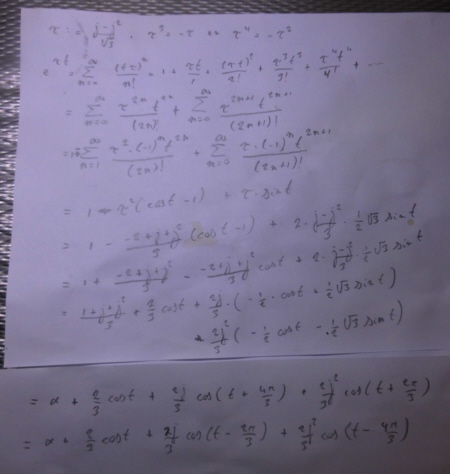 τ := (j-j²)/√3 , τ³ = -τ ⇒ τ⁴ = -τ²
e^{τt} = Σ_{n=0}^{∞} (tτ)^n/n! = 1 + τt/1 + (tτ)²/2! + τ³t³/3! + τ⁴t⁴/4! + ...
= Σ_{n=0}^{∞} τ^{2n} t^{2n}/(2n)! + Σ_{n=0}^{∞} τ^{2n+1} t^{2n+1}/(2n+1)!
= 1 - Σ_{n=1}^{∞} τ²·(-1)^n t^{2n}/(2n)! + Σ_{n=0}^{∞} τ·(-1)^n t^{2n+1}/(2n+1)!
= 1 - τ²(cos t - 1) + τ·sin t
= 1 - (-2+j+j²)/3 (cos t - 1) + 2·(j-j²)/3 · ½√3 sin t
= 1 + (-2+j+j²)/3 - (-2+j+j²)/3 cos t + 2·(j-j²)/3 · ½√3 sin t
= (1+j+j²)/3 + 2/3 cos t + 2j/3 · (-½·cos t + ½√3 sin t)
+ 2j²/3 (-½ cos t - ½√3 sin t)
= α + 2/3 cos t + 2j/3 cos(t + 4π/3) + 2j²/3 cos(t + 2π/3)
= α + 2/3 cos t + 2j/3 cos(t - 2π/3) + 2j²/3 cos(t - 4π/3)